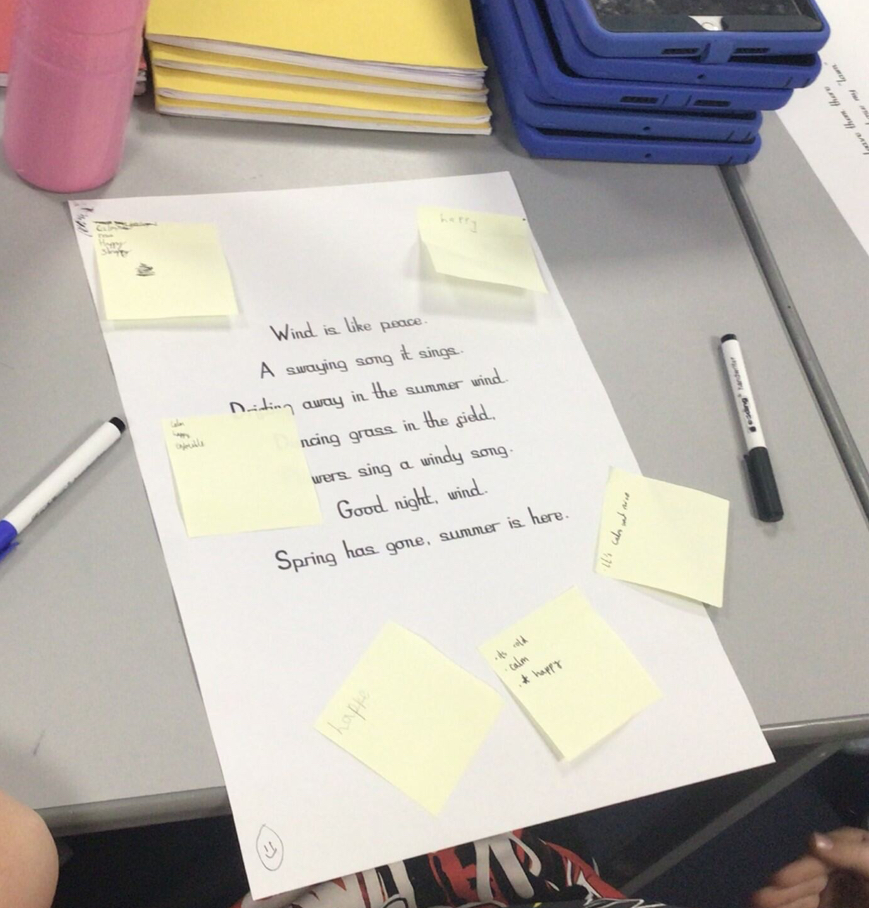 Happy
happy
Wind is like peace.
A swaying song it sings.
Drifting away in the summer wind.
ncing grass in the field,
wers sing a windy song.
Good night, wind.
Spring has gone, summer is here.
calm
happy
It's calm and nice
its cold
calm
happy
happe
Leave them there
my